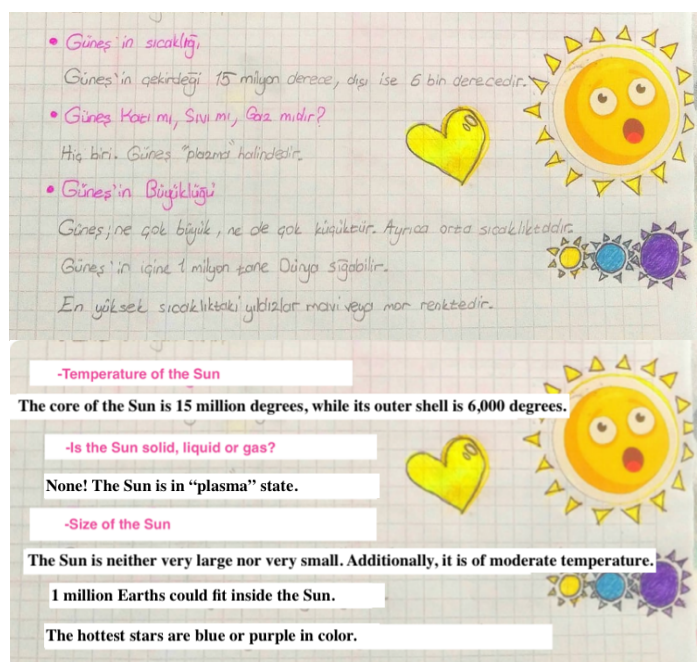 • Güneş'in sıcaklığı
Güneş'in çekirdeği 15 milyon derece, dışı ise 6 bin derecedir.
• Güneş Katı mı, Sıvı mı, Gaz mıdır?
Hiç biri. Güneş "plazma" halindedir.
• Güneş'in Büyüklüğü
Güneş; ne çok büyük, ne de çok küçüktür. Ayrıca orta sıcaklıktadır.
Güneş'in içine 1 milyon tane Dünya sığabilir.
En yüksek sıcaklıktaki yıldızlar mavi veya mor renktedir.
-Temperature of the Sun
The core of the Sun is 15 million degrees, while its outer shell is 6,000 degrees.
-Is the Sun solid, liquid or gas?
None! The Sun is in “plasma” state.
-Size of the Sun
The Sun is neither very large nor very small. Additionally, it is of moderate temperature.
1 million Earths could fit inside the Sun.
The hottest stars are blue or purple in color.